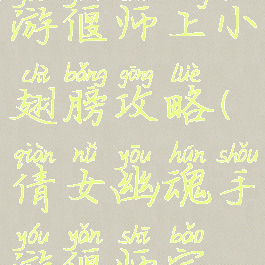 游偃师上小
chì bǎng gōng lüè
翅膀攻略(
qiàn nǚ yōu hún shǒu
倩女幽魂手
yóu yǎn shī bǎo
游偃师宝